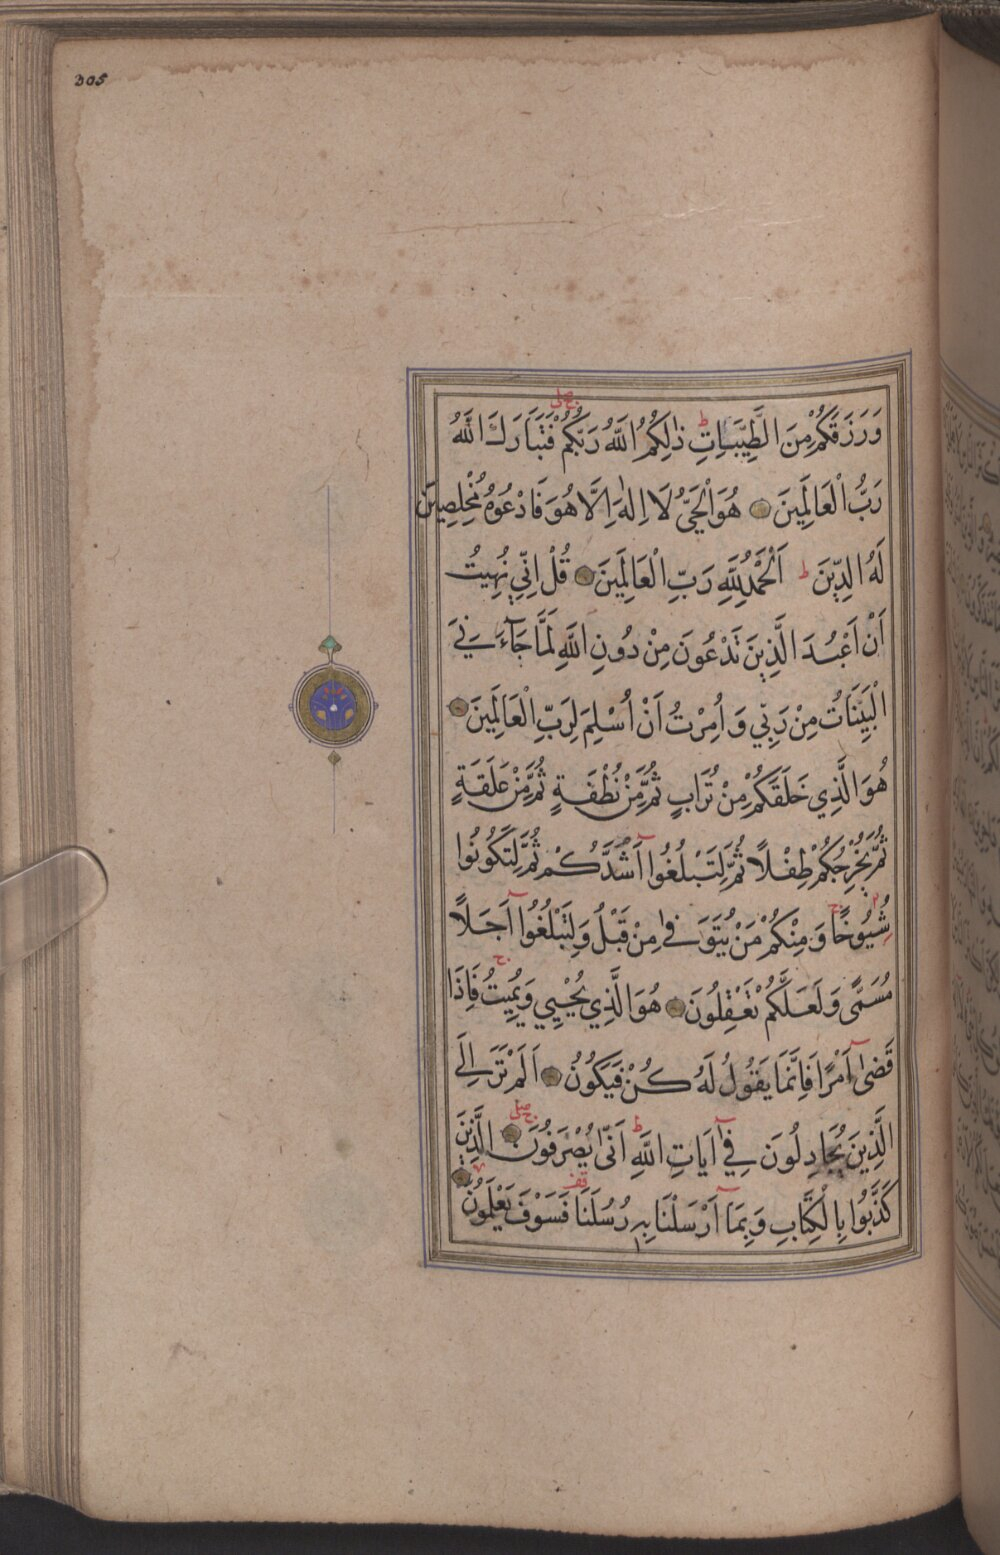 305
وَرَزَقَكُمْ مِنَ الطَّيِّبَاتِ ط ذٰلِكُمُ اللّٰهُ رَبُّكُمْ فَتَبَارَكَ اللّٰهُ
رَبُّ الْعَالَمِينَ هُوَ الْحَيُّ لَا اِلٰهَ اِلَّا هُوَ فَادْعُوهُ مُخْلِصِينَ
لَهُ الدِّينَ ط اَلْحَمْدُ لِلّٰهِ رَبِّ الْعَالَمِينَ قُلْ اِنِّي نُهِيتُ
اَنْ اَعْبُدَ الَّذِينَ تَدْعُونَ مِنْ دُونِ اللّٰهِ لَمَّا جَآءَنِيَ
الْبَيِّنَاتُ مِنْ رَبِّي وَاُمِرْتُ اَنْ اُسْلِمَ لِرَبِّ الْعَالَمِينَ
هُوَ الَّذِي خَلَقَكُمْ مِنْ تُرَابٍ ثُمَّ مِنْ نُطْفَةٍ ثُمَّ مِنْ عَلَقَةٍ
ثُمَّ يُخْرِجُكُمْ طِفْلًا ثُمَّ لِتَبْلُغُوا اَشُدَّكُمْ ثُمَّ لِتَكُونُوا
شُيُوخًا ج وَمِنْكُمْ مَنْ يُتَوَفّٰى مِنْ قَبْلُ وَلِتَبْلُغُوا اَجَلًا
مُسَمًّى وَلَعَلَّكُمْ تَعْقِلُونَ هُوَ الَّذِي يُحْيِي وَيُمِيتُ ج فَاِذَا
قَضٰى اَمْرًا فَاِنَّمَا يَقُولُ لَهُ كُنْ فَيَكُونُ اَلَمْ تَرَ اِلَى
الَّذِينَ يُجَادِلُونَ فِي اٰيَاتِ اللّٰهِ ط اَنّٰى يُصْرَفُونَ الَّذِينَ
كَذَّبُوا بِالْكِتَابِ وَبِمَا اَرْسَلْنَا بِهِ رُسُلَنَا قف فَسَوْفَ يَعْلَمُونَ